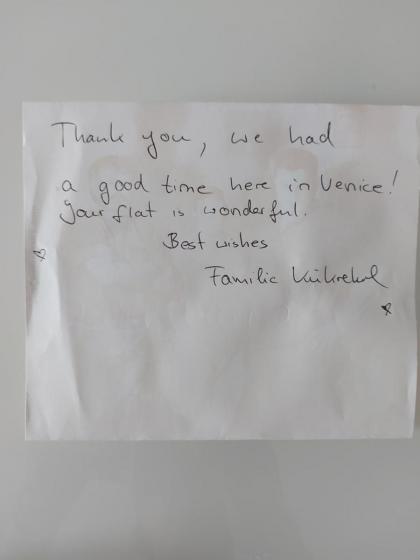 Thank you, we had
a good time here in Venice!
Your flat is wonderful.
Best wishes
Familie